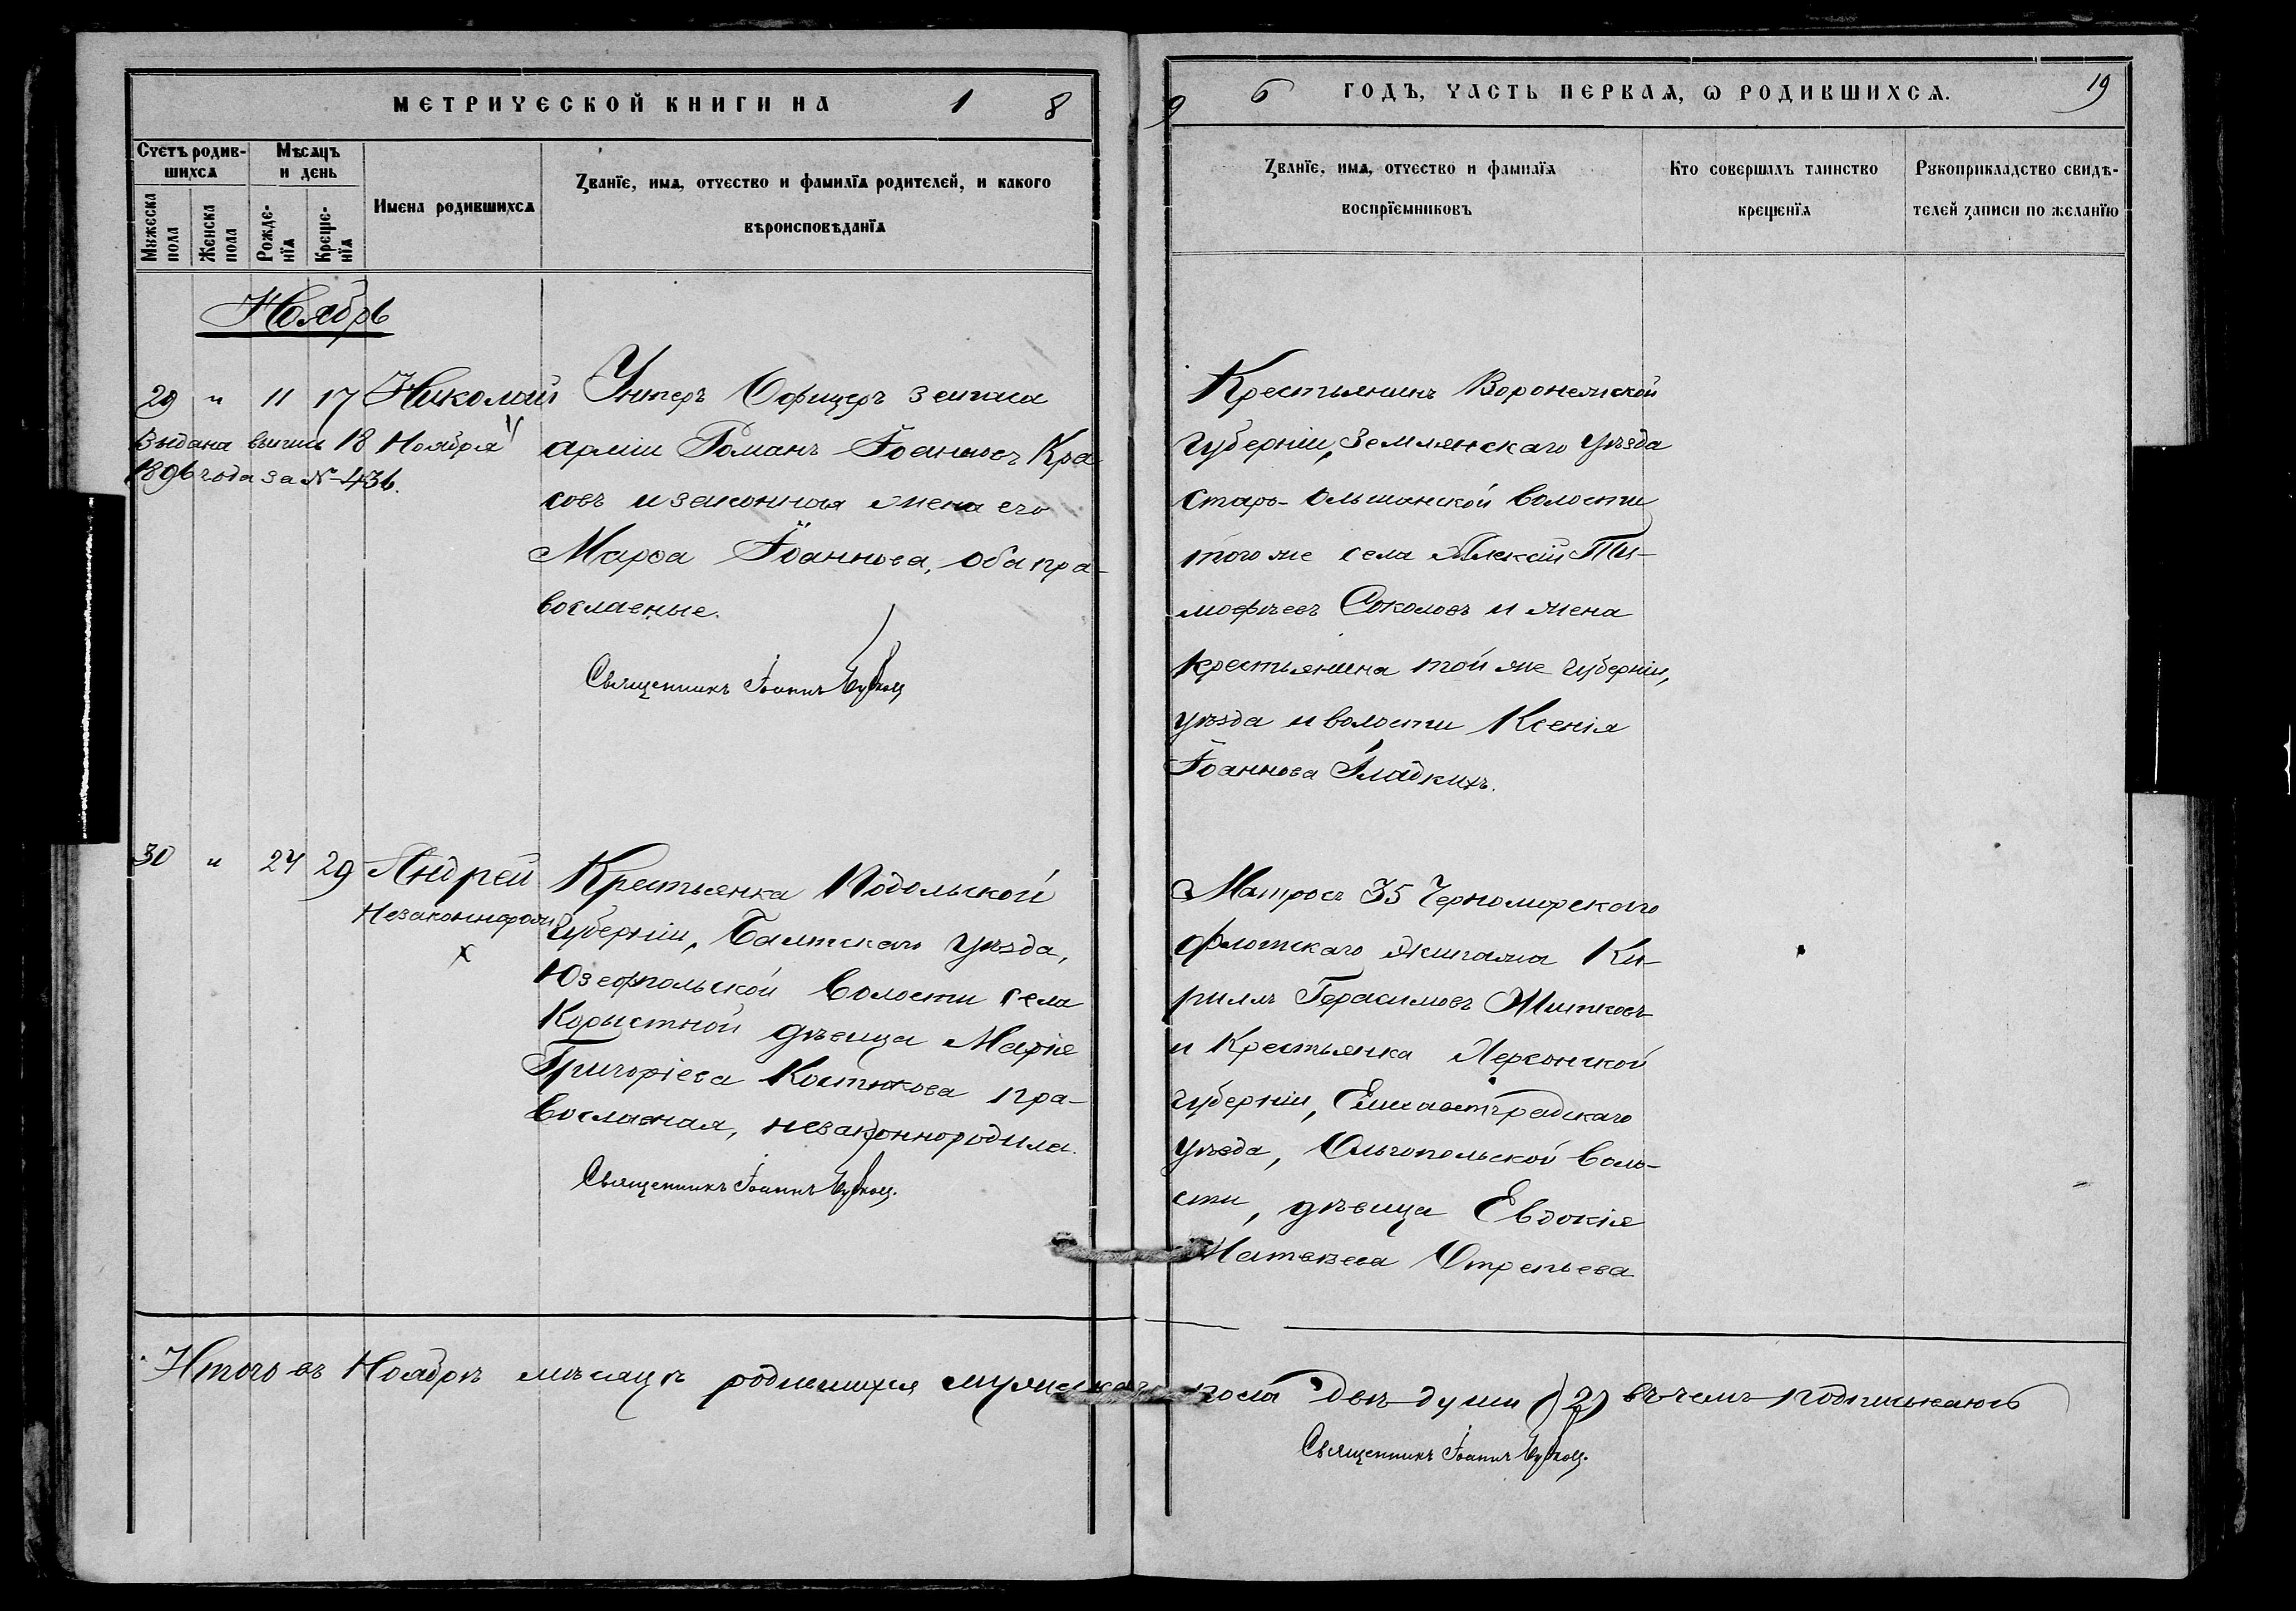 МЕТРИЧЕСКОЙ КНИГИ НА 1 8
9 6 ГОДЪ, ЧАСТЬ ПЕРВАЯ, Ѡ РОДИВШИХСЯ. 19
Счетъ родив-
шихся
Мѣсяцъ
и день
Мужеска
пола
Женска
пола
Рожде-
нїя
Креще-
нїя
Имена родившихся
Званїе, имя, отчество и фамилїя родителей, и какого
вѣроисповѣданїя
Званїе, имя, отчество и фамилїя
воспрїемниковъ
Кто совершалъ таинство
крещенїя
Рукоприкладство свидѣ-
телей записи по желанїю
Ноябрь
29 " 11 17 Николай
Выдана выпись 18 Ноября
1896 года за № 436.
Унтеръ Офицеръ запаса
арміи Романъ Іоанновъ Кра
совъ и законная жена его
Марѳа Іоаннова, оба пра-
вославные.
Священникъ Іоаннъ
Крестьянинъ Воронежской
губерніи, Землянскаго уѣзда
Старо-Ольшанской волости
того же села Алексій Ти-
мофѣевъ Соколовъ и жена
крестьянина той же губерніи,
уѣзда и волости Ксенія
Іоаннова Гладкихъ.
30 " 24 29 Андрей
Незаконнорож
х
Крестьянка Подольской
губерніи, Балтскаго уѣзда,
Юзефпольской волости села
Корыстной дѣвица Марія
Григоріева Костюкова пра-
вославная, незаконнородила.
Священникъ Іоаннъ
Матросъ 35 Черноморскаго
флотскаго экипажа Ки-
риллъ Герасимовъ Житковъ
и Крестьянка Херсонской
губерніи, Елисаветградскаго
уѣзда, Ольгопольской воло-
сти, дѣвица Евдокія
Матвѣева Отрепьева
Итого въ Ноябрѣ мѣсяцѣ родившихся мужескаго пола двѣ души (2) въ чемъ подписываюсь
Священникъ Іоаннъ